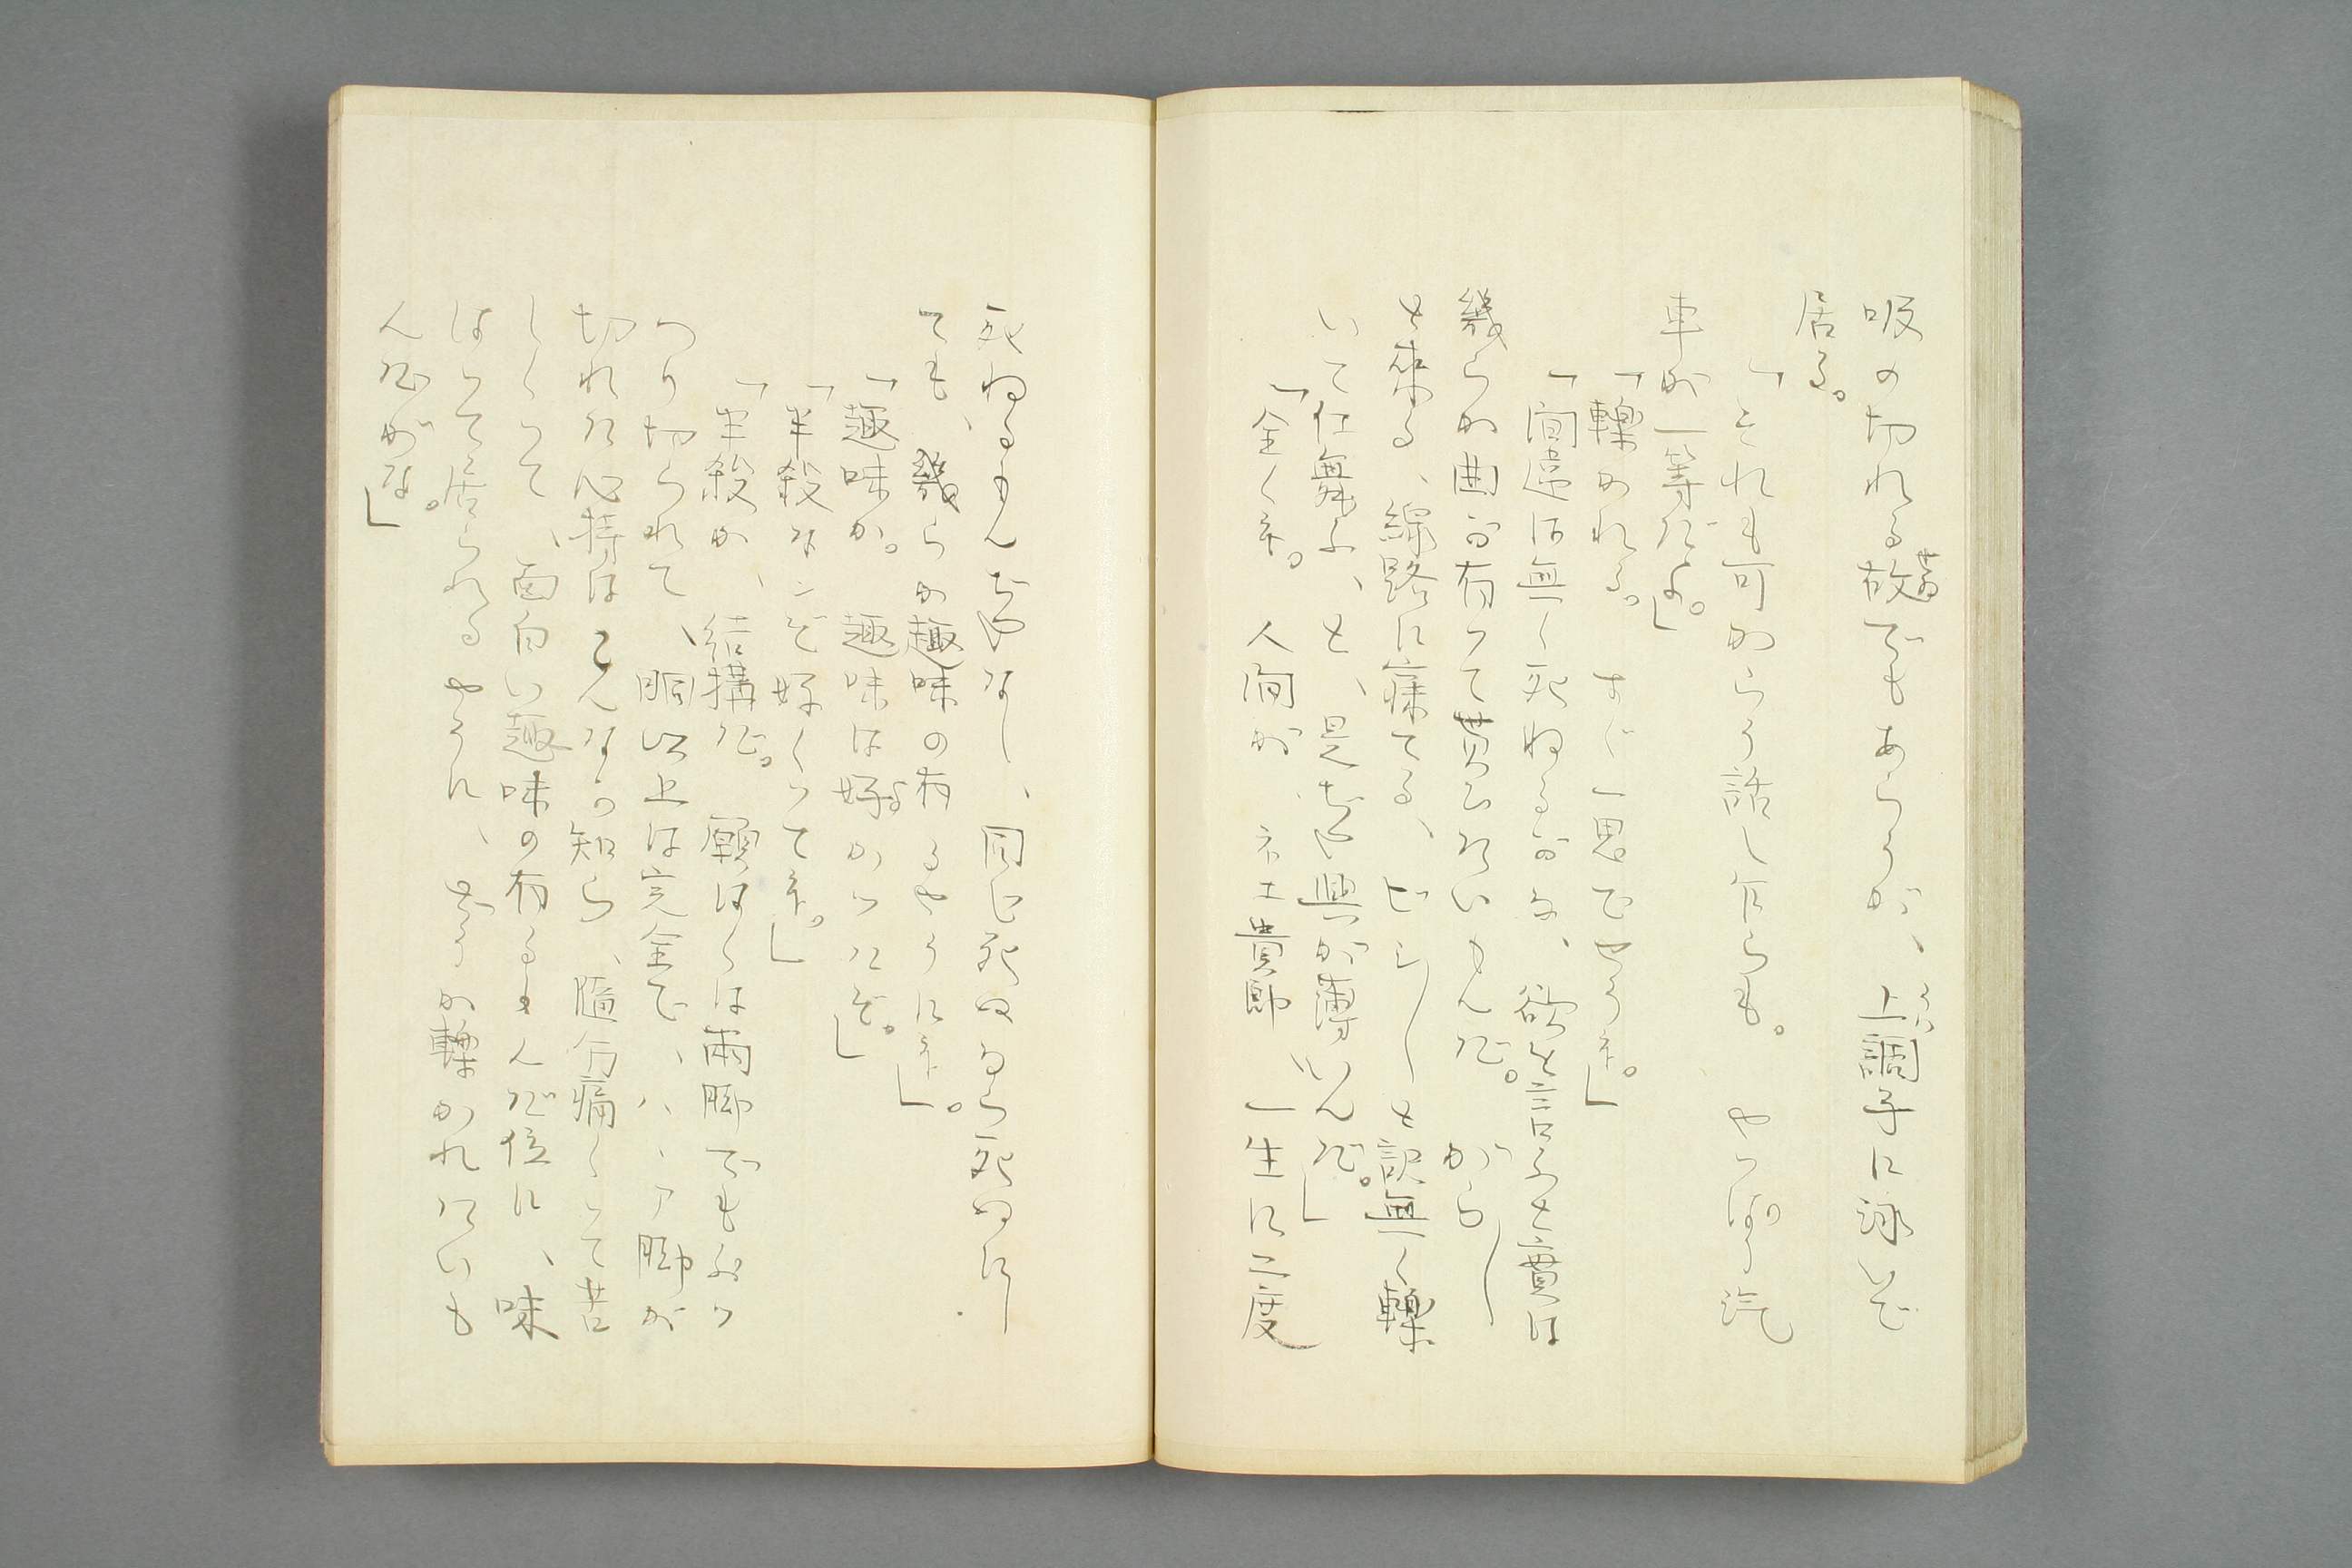 吸の切れる故(せゐ)でもあらうが、上(うは)調子に詠いで
居る。
「それも可からう話し乍らも。やつぱり汽
車が一等だよ。」
「轢かれる。すぐ一思でやうす。」
「間違は無く死ねるがな、欲を言ふと實は
幾らか曲が有つて貰ひたいもんだ。がらー
と來る、線路に寐てる、ピシーと訳無く轢
いて仕舞ふ、と、是ぢや興が薄いんだ。」
「全くネ。人間がネエ貴郎一生に二度
死ねるもんぢやなし、同じ死ぬなら死ぬにー
ても、幾らか趣味の有るやうにネ。」
「趣味か。趣味は好(よ)かつたぞ。」
「半殺なンぞ好くつてネ。」
「半殺か、結構だ。願はくは兩脚でもぷッ
つり切られて、胴以上は完全で、ハヽア脚が
切れた心持はこんなもの知ら、隨分痛くつて苦
しくつて、面白い趣味の有るもんだ位に、味
はつて居られるやうに、さうか轢かれたいも
んだがな。」